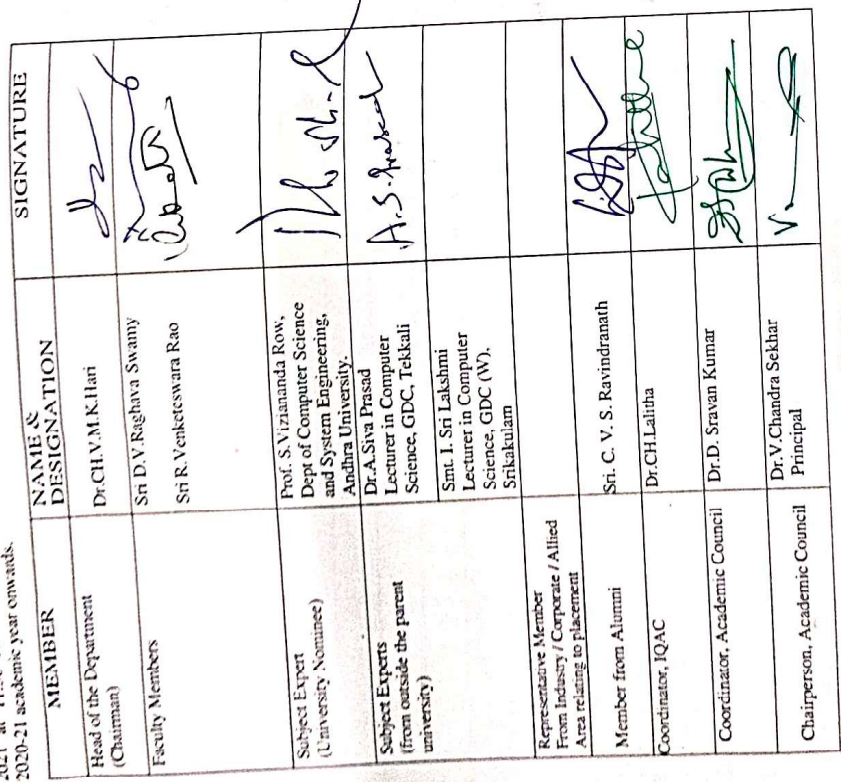 2020-21 academic year onwards.
MEMBER
NAME &
DESIGNATION
SIGNATURE
Head of the Department
(Chairman)
Dr.CH.V.M.K.Hari
Faculty Members
Sri D.V.Raghava Swamy
Sri R.Venketeswara Rao
Subject Expert
(University Nominee)
Prof. S.Viziananda Row,
Dept of Computer Science
and System Engineering,
Andhra University.
Subject Experts
(from outside the parent
university)
Dr.A.Siva Prasad
Lecturer in Computer
Science, GDC, Tekkali
A.S.Prasad
Smt. I. Sri Lakshmi
Lecturer in Computer
Science, GDC (W),
Srikakulam
Representative Member
From Industry / Corporate / Allied
Area relating to placement
Member from Alumni
Sri. C. V. S. Ravindranath
Coordinator, IQAC
Dr.CH.Lalitha
Coordinator, Academic Council
Dr.D. Sravan Kumar
Chairperson, Academic Council
Dr.V.Chandra Sekhar
Principal